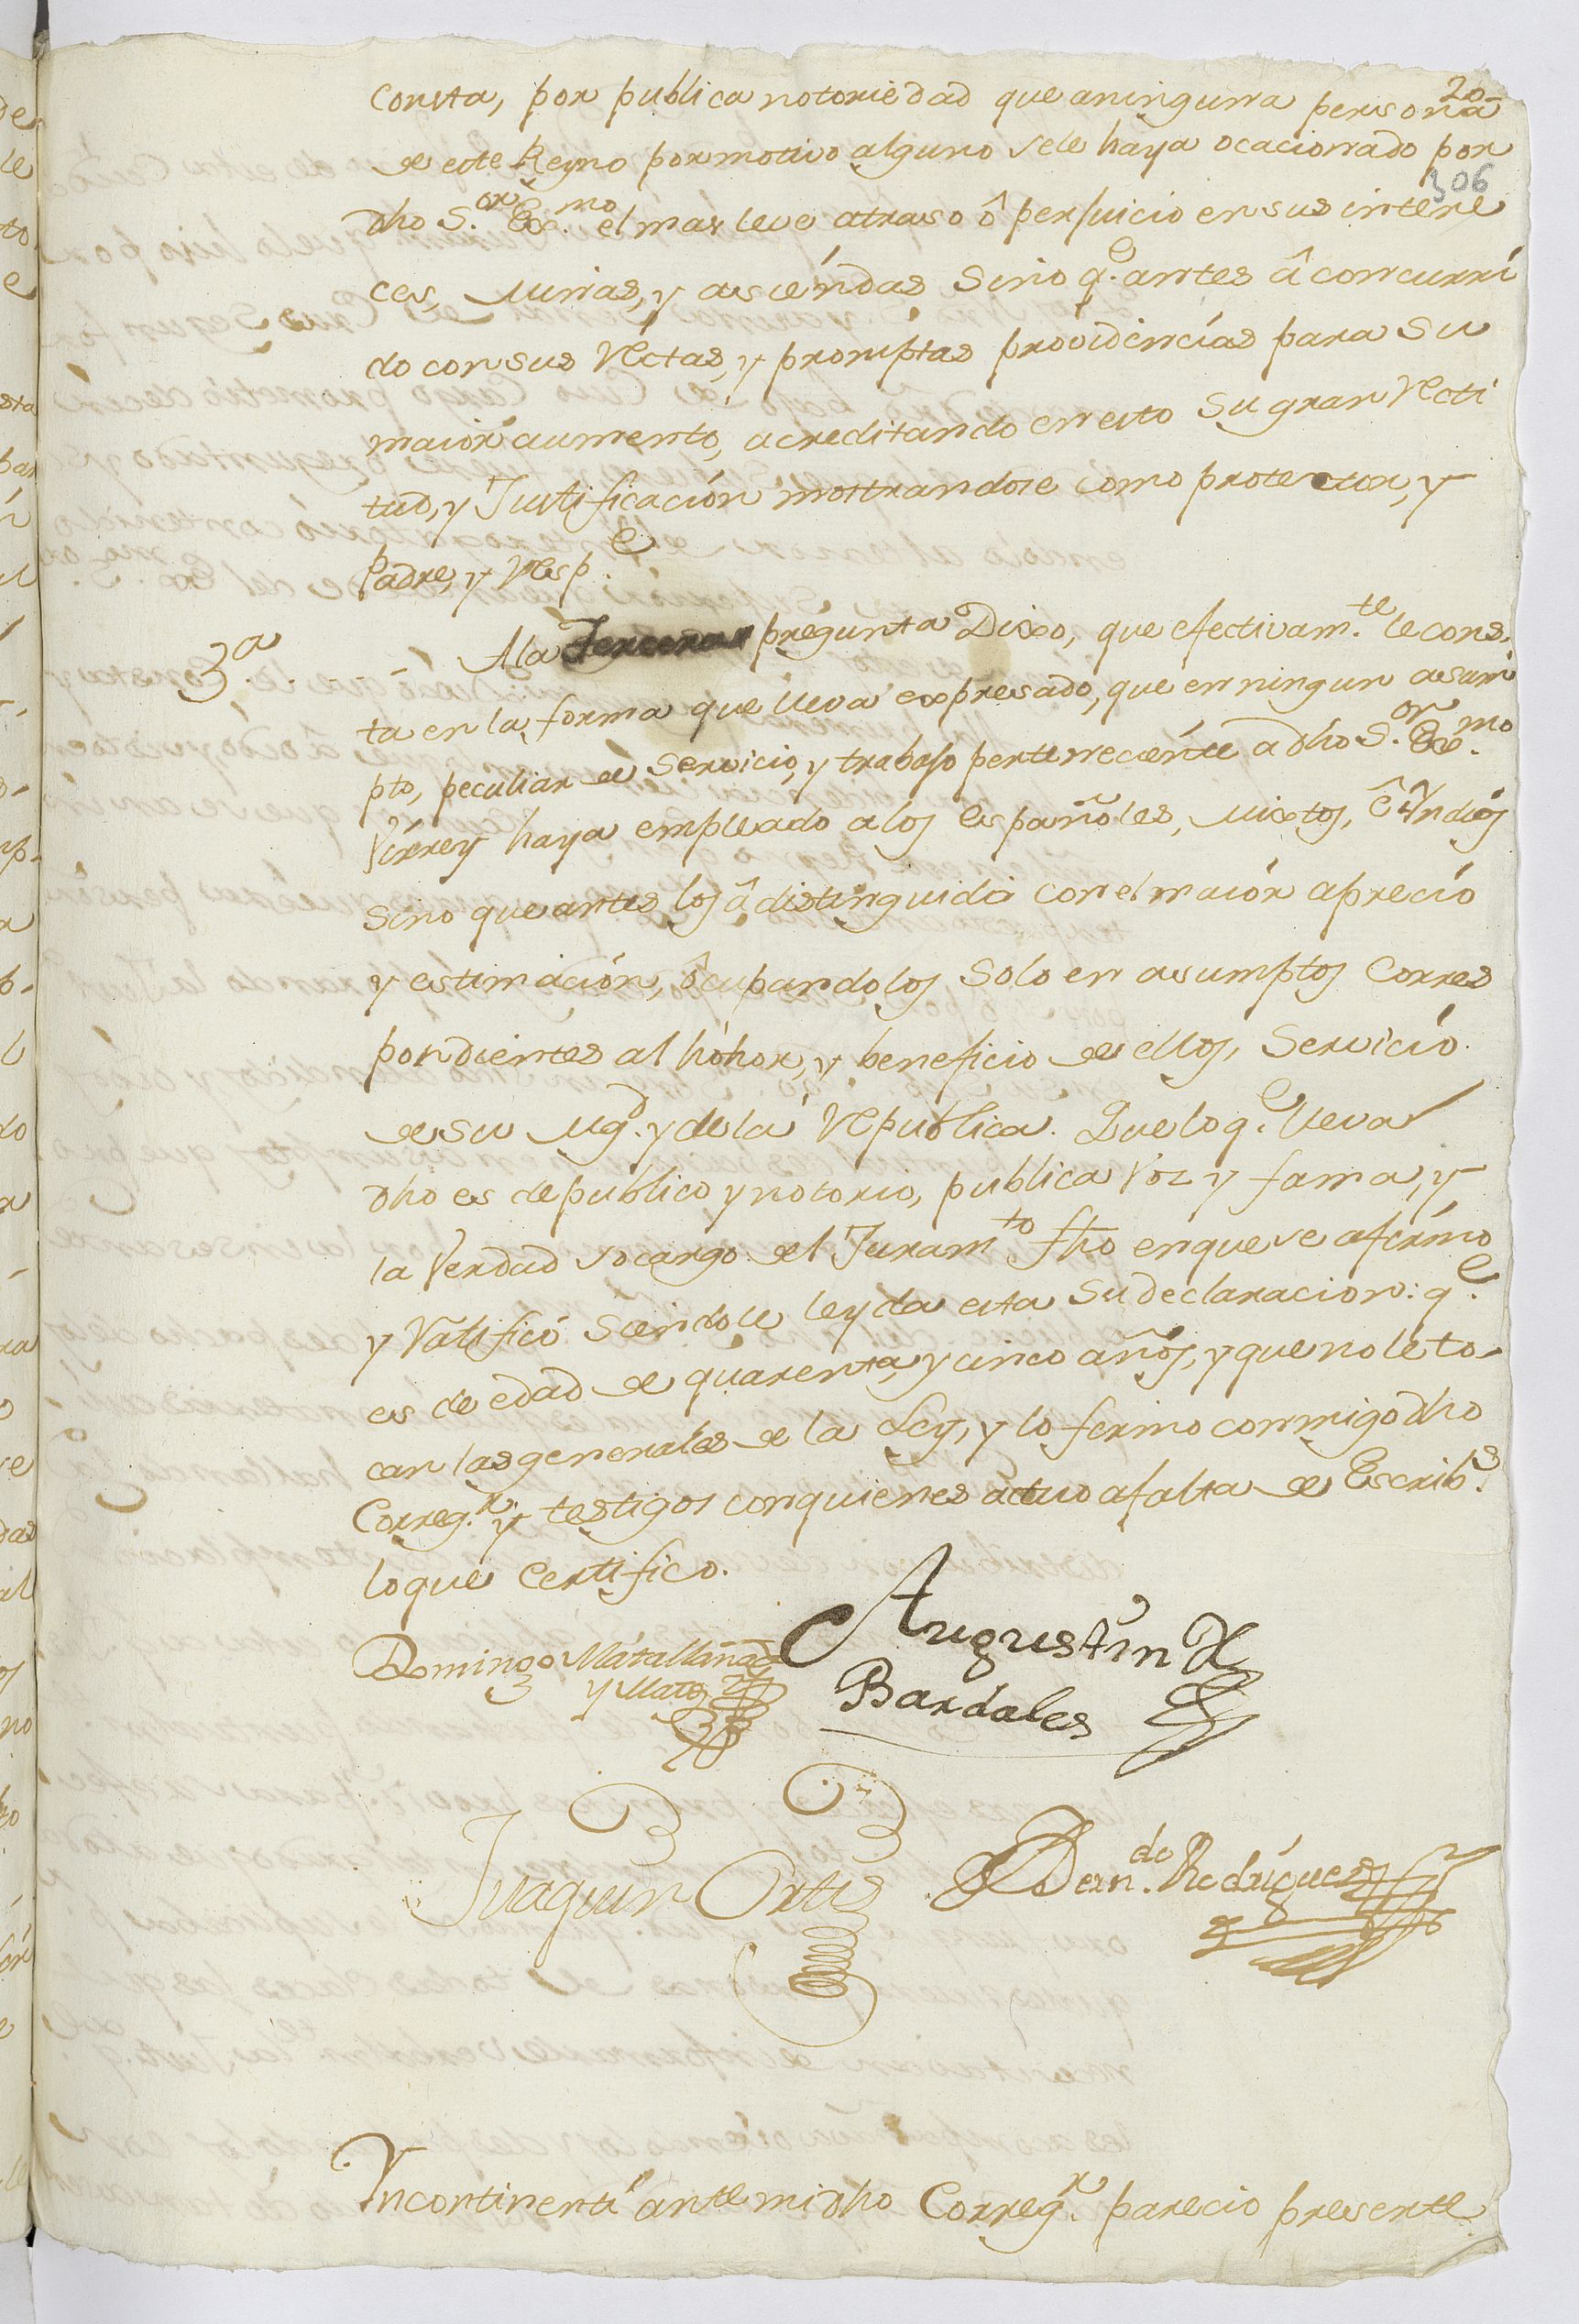 20
consta, por publica notoriedad que aninguna persona
de este Reyno por motivo alguno sele haya ocacionado por
306
dho S.or Ex.mo el mas leve atraso ô perjuicio en sus intere
ces, Minas, y asciéndas Sino q.e antes â concurri
do con sus Rectas, y promptas providencias para su
maior aumento, acreditando en esto Su gran Recti
tud, y Justificación mostrandose como protector, y
Padre, y Resp.e
3.a
Ala Tercera pregunta Dixo, que efectivam.te le cons.
ta en la forma que lleva expresado, que en ningun asum
pto, peculiar de Servicio, y trabajo perteneciénte a dho S.or Exe.mo
Virrey haya empleado a los Españoles, Mixtos, ê Yndios
Sino que antes los â distinguido con el maiór aprecio
y estimación, ôcupandolos Solo en asumptos Corres
pondientes al hohor, y beneficio de ellos, Servicio
de su Mg.d y dela Republica. Que lo q.e lleva
dho es de publico y notorio, publica Voz y fama, y
la Verdad socargo del Juram.to fho en que se afirmo
y Ratificó siendole leyda esta Su declaracion: q.e
es de edad de quarenta, y cinco años, y que no le to-
can las generales de la Ley, y lo firmo conmigo dho
Correg.r y testigos con quienes actuo afalta de Escrib.s
lo que Certifico.
Augustin
Domingo Matallana
y Matos
Bardales
Juaquin Ortis
Bern.do Rodriguez
Yncontinenti ante mi dho Correg.r parecio presente